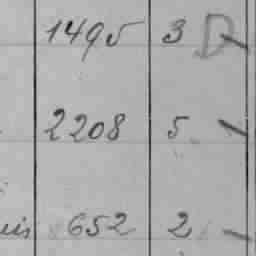 1495 3 D
2208 5
652 2